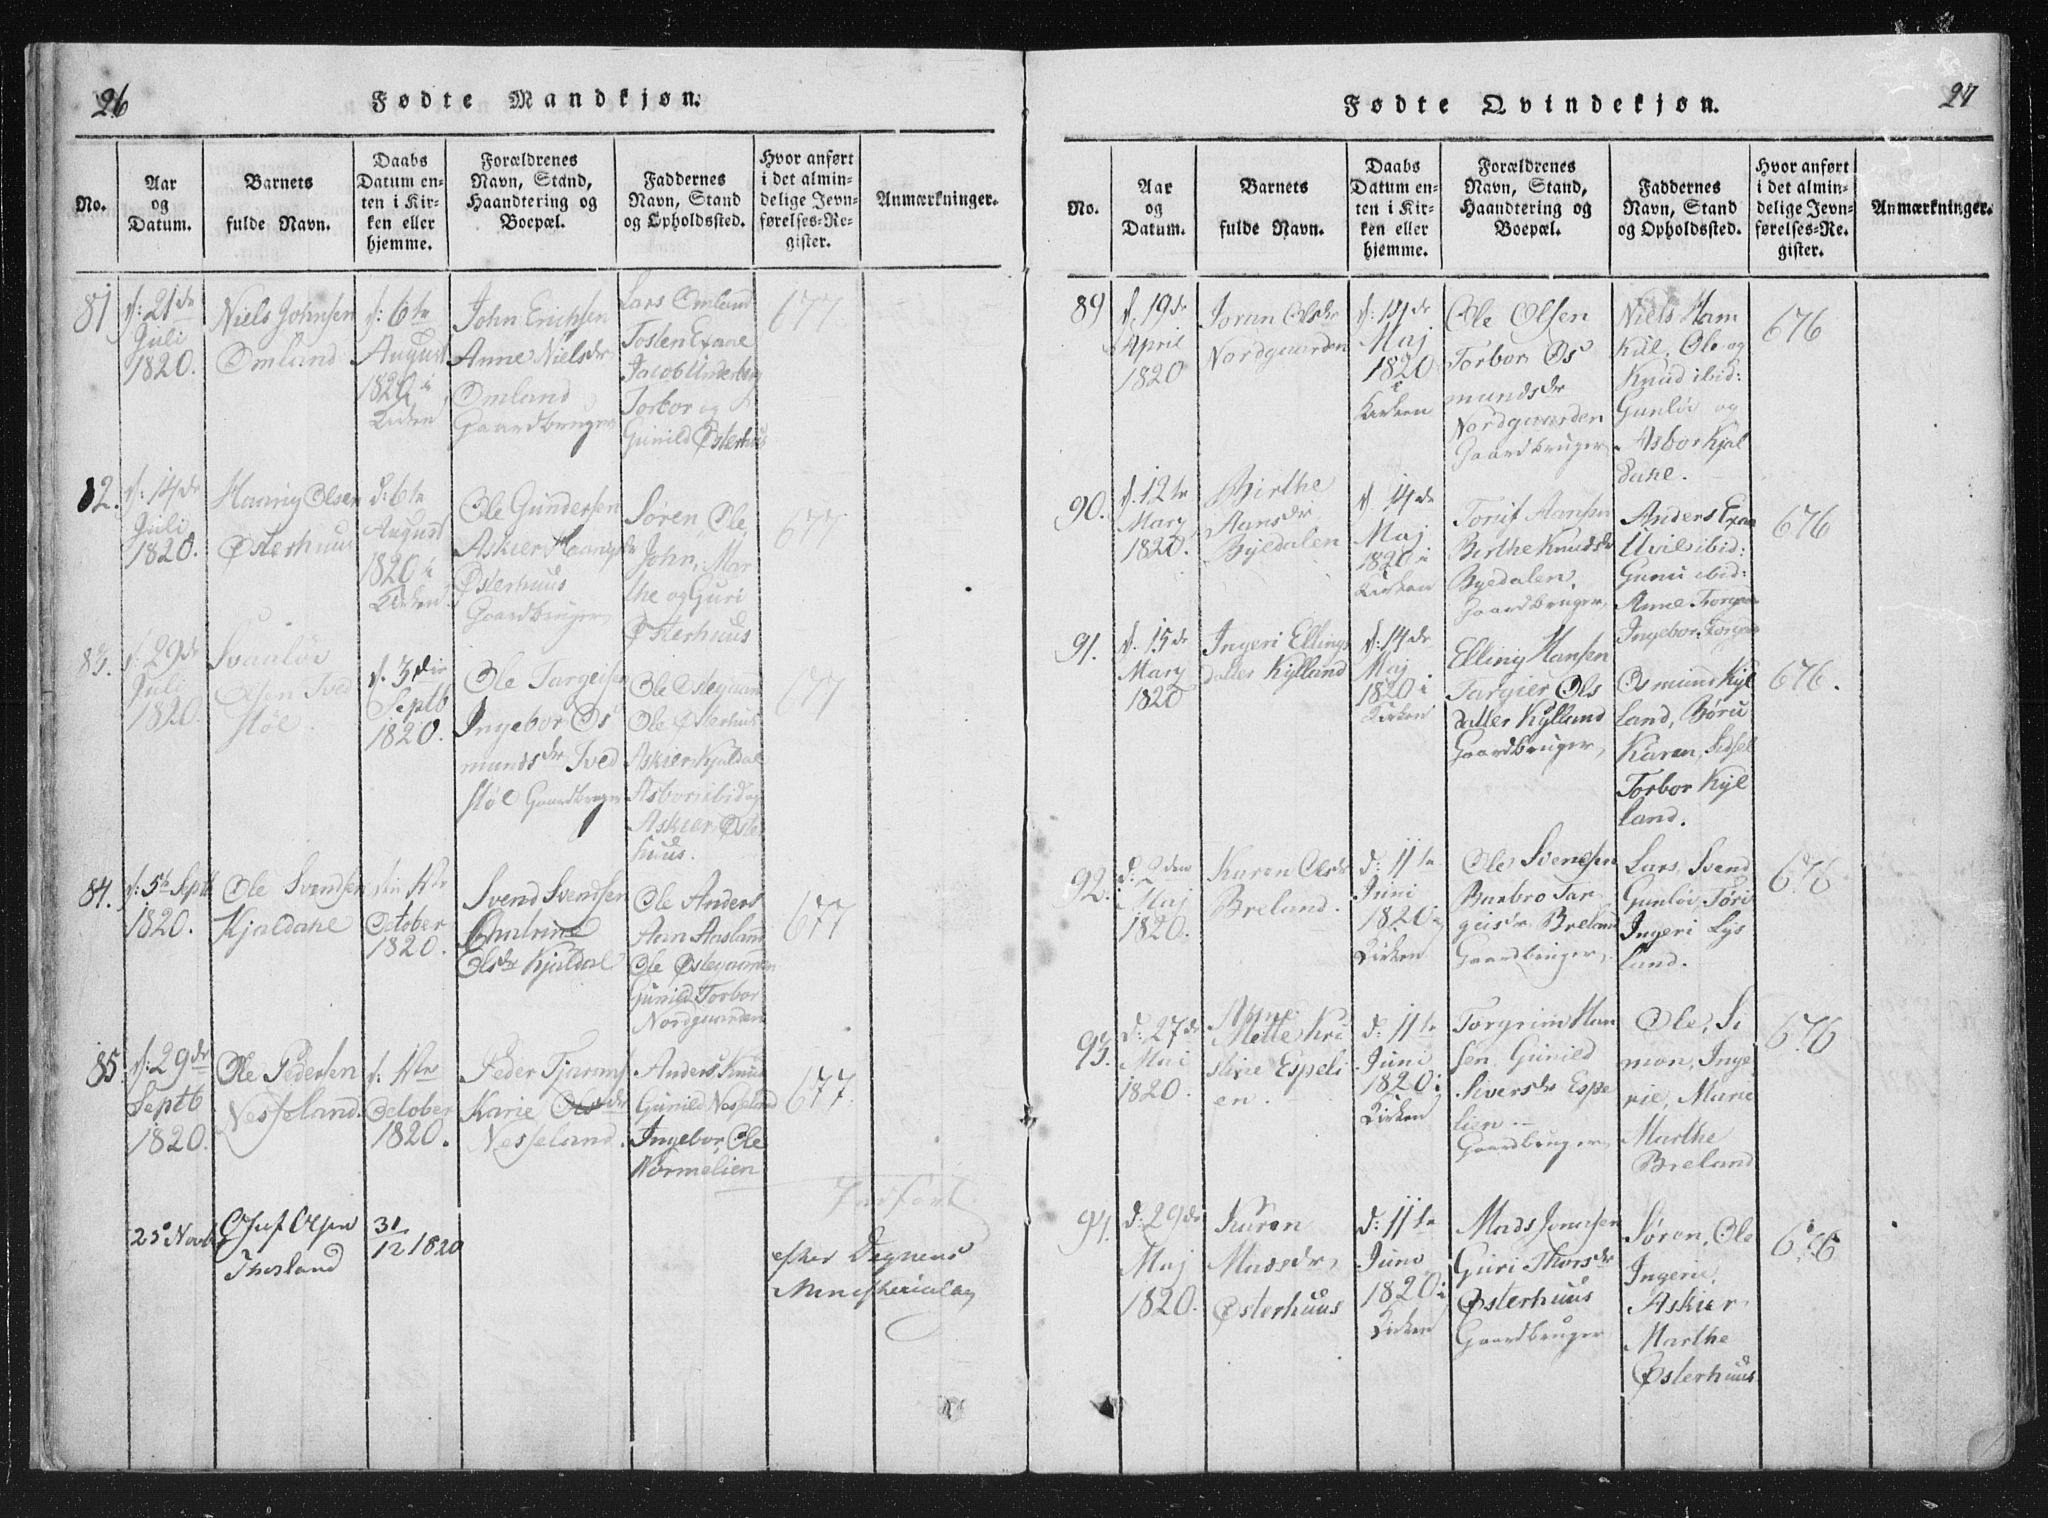 26
Fødte Mandkjøn.
No.
Aar
og
Datum.
Barnets
fulde Navn.
Daabs
Datum en-
ten i Kir-
ken eller
hjemme.
Forældrenes
Navn, Stand,
Haandtering og
Boepæl.
Faddernes
Navn, Stand
og Opholdssted.
Hvor anført
i det almin-
delige Jevn-
førelses-Re-
gister.
Anmærkninger.
81
d: 21de
Juli
1820.
Niels Johnsen
Omland
d: 6te
August
1820 i
Kirken
John Erichsen
Anne Nielsdr
Omland
Gaardbruger
Lars Omland
Tosten Exaae
Jacob Underberg
Torbor og
Gunild Østerhuus
677
82.
d: 14de
Juli
1820.
Haavig Olsen
Østerhuus
d: 6te
August
1820 i
Kirken
Ole Gundersen
Askier Haavigsdr
Østerhuus
Gaardbruger
Søren, Ole,
John, Mar
the og Guri
Østerhuus
677
83.
d: 29de
Juli
1820.
Svanløv
Olsen Tved
støl
d. 3die
Septb
1820.
Ole Targeisen
Ingebor Os
mundsdr Tved
støl Gaardbruger
Ole Østegaard
Ole Østerhuus
Askier Kjaldal
Asbor ibid og
Askier Øster
huus.
677
84.
d: 5te Septb
1820.
Ole Svendsen
Kjaldahl
den 1ste
October
1820.
Svend Svendsen
Cathrine
Olsdr Kjaldal
Ole Anders
Aan Aasland
Ole Østegaarden
Gunild Torbor
Nordgaarden
677
85
d: 29de
Septb
1820.
Ole Pedersen
Nesseland.
d. 1ste
October
1820.
Peder Tjøraas
Karie Olsdr
Nesseland.
Anders Knud
Gunild Nesseland
Ingebor, Ole
Wormelien
677
25de Novb
Oluf Olsen
Thorsland
31/12 1820
Indført
efter Degnens
Ministerialbog
27
Fødte Qvindekjøn.
No.
Aar
og
Datum.
Barnets
fulde Navn.
Daabs
Datum en-
ten i Kir-
ken eller
hjemme.
Forældrenes
Navn, Stand,
Haandtering og
Boepæl.
Faddernes
Navn, Stand
og Opholdssted.
Hvor anført
i det almin-
delige Jevn-
førelses-Re-
gister.
Anmærkninger.
89
d. 19de
April
1820
Joran Olsdr
Nordgaarden
d: 14de
Maj
1820
i
Kirken
Ole Olsen
Torbor Os
mundsdr
Nordgaarden
Gaardbruger
Niels Ham
kul, Ole og
Knud ibid:
Gunløv og
Asbor Kjal
dahl.
676
90.
d. 12te
Marz
1820.
Birthe
Aansdr
Byedalen
d. 14de
Maj
1820 i
Kirken
Toruf Aansen
Birthe Knudsdr
Byedalen.
Gaardbruger
Anders Exaa
Uvil ibid:
Guni ibid:
Anne
Ingebor
676
91.
d. 15de
Marz
1820
Ingeri Ellings
datter Kylland
d: 14de
Maj
1820 i
Kirken
Elling Hansen
Targier Ols
datter Kylland
Gaardbruger,
Osmund Kyl
land, Børu
Karen, Sidsel
Torbor Kyl
land.
676.
92.
d: 2den
Maj
1820.
Karen Olsdr
Breland.
d: 11te
Juni
1820 i
Kirken
Ole Svensen
Barbro Tar
geisdr Breland
Gaardbruger,
Lars, Svend
Gunløv, Tøri
Ingeri Lys
land.
676
93.
d: 27de
Mai
1820.
Anne
Mette Kri
stine Espeli
en.
d: 11te
Juni
1820 i
Kirken
Torgrim Han
sen, Gunild
Siversdr Espe
lien -
Gaardbruger
Ole, Si
mon, Inge
rie, Marie
Marthe
Breland
676
94.
d: 29de
Maj
1820.
Karen
Madsdr,
Østerhuus
d: 11te
Juni
1820 i
Kirken
Mads Jonasen
Guri Thorsdr
Østerhuus
Gaardbruger
Søren, Ole
Ingerie,
Askier
Marthe
Østerhuus
676